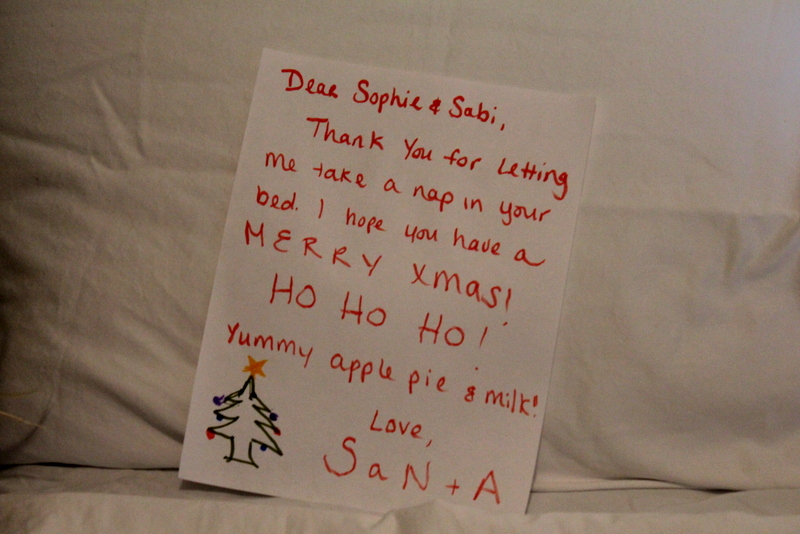 Dear Sophie & Sabi,
Thank You for Letting
me take a nap in your
bed. I hope you have a
MERRY xmas!
HO HO HO!
Yummy apple pie & milk!
Love,
SaNtA